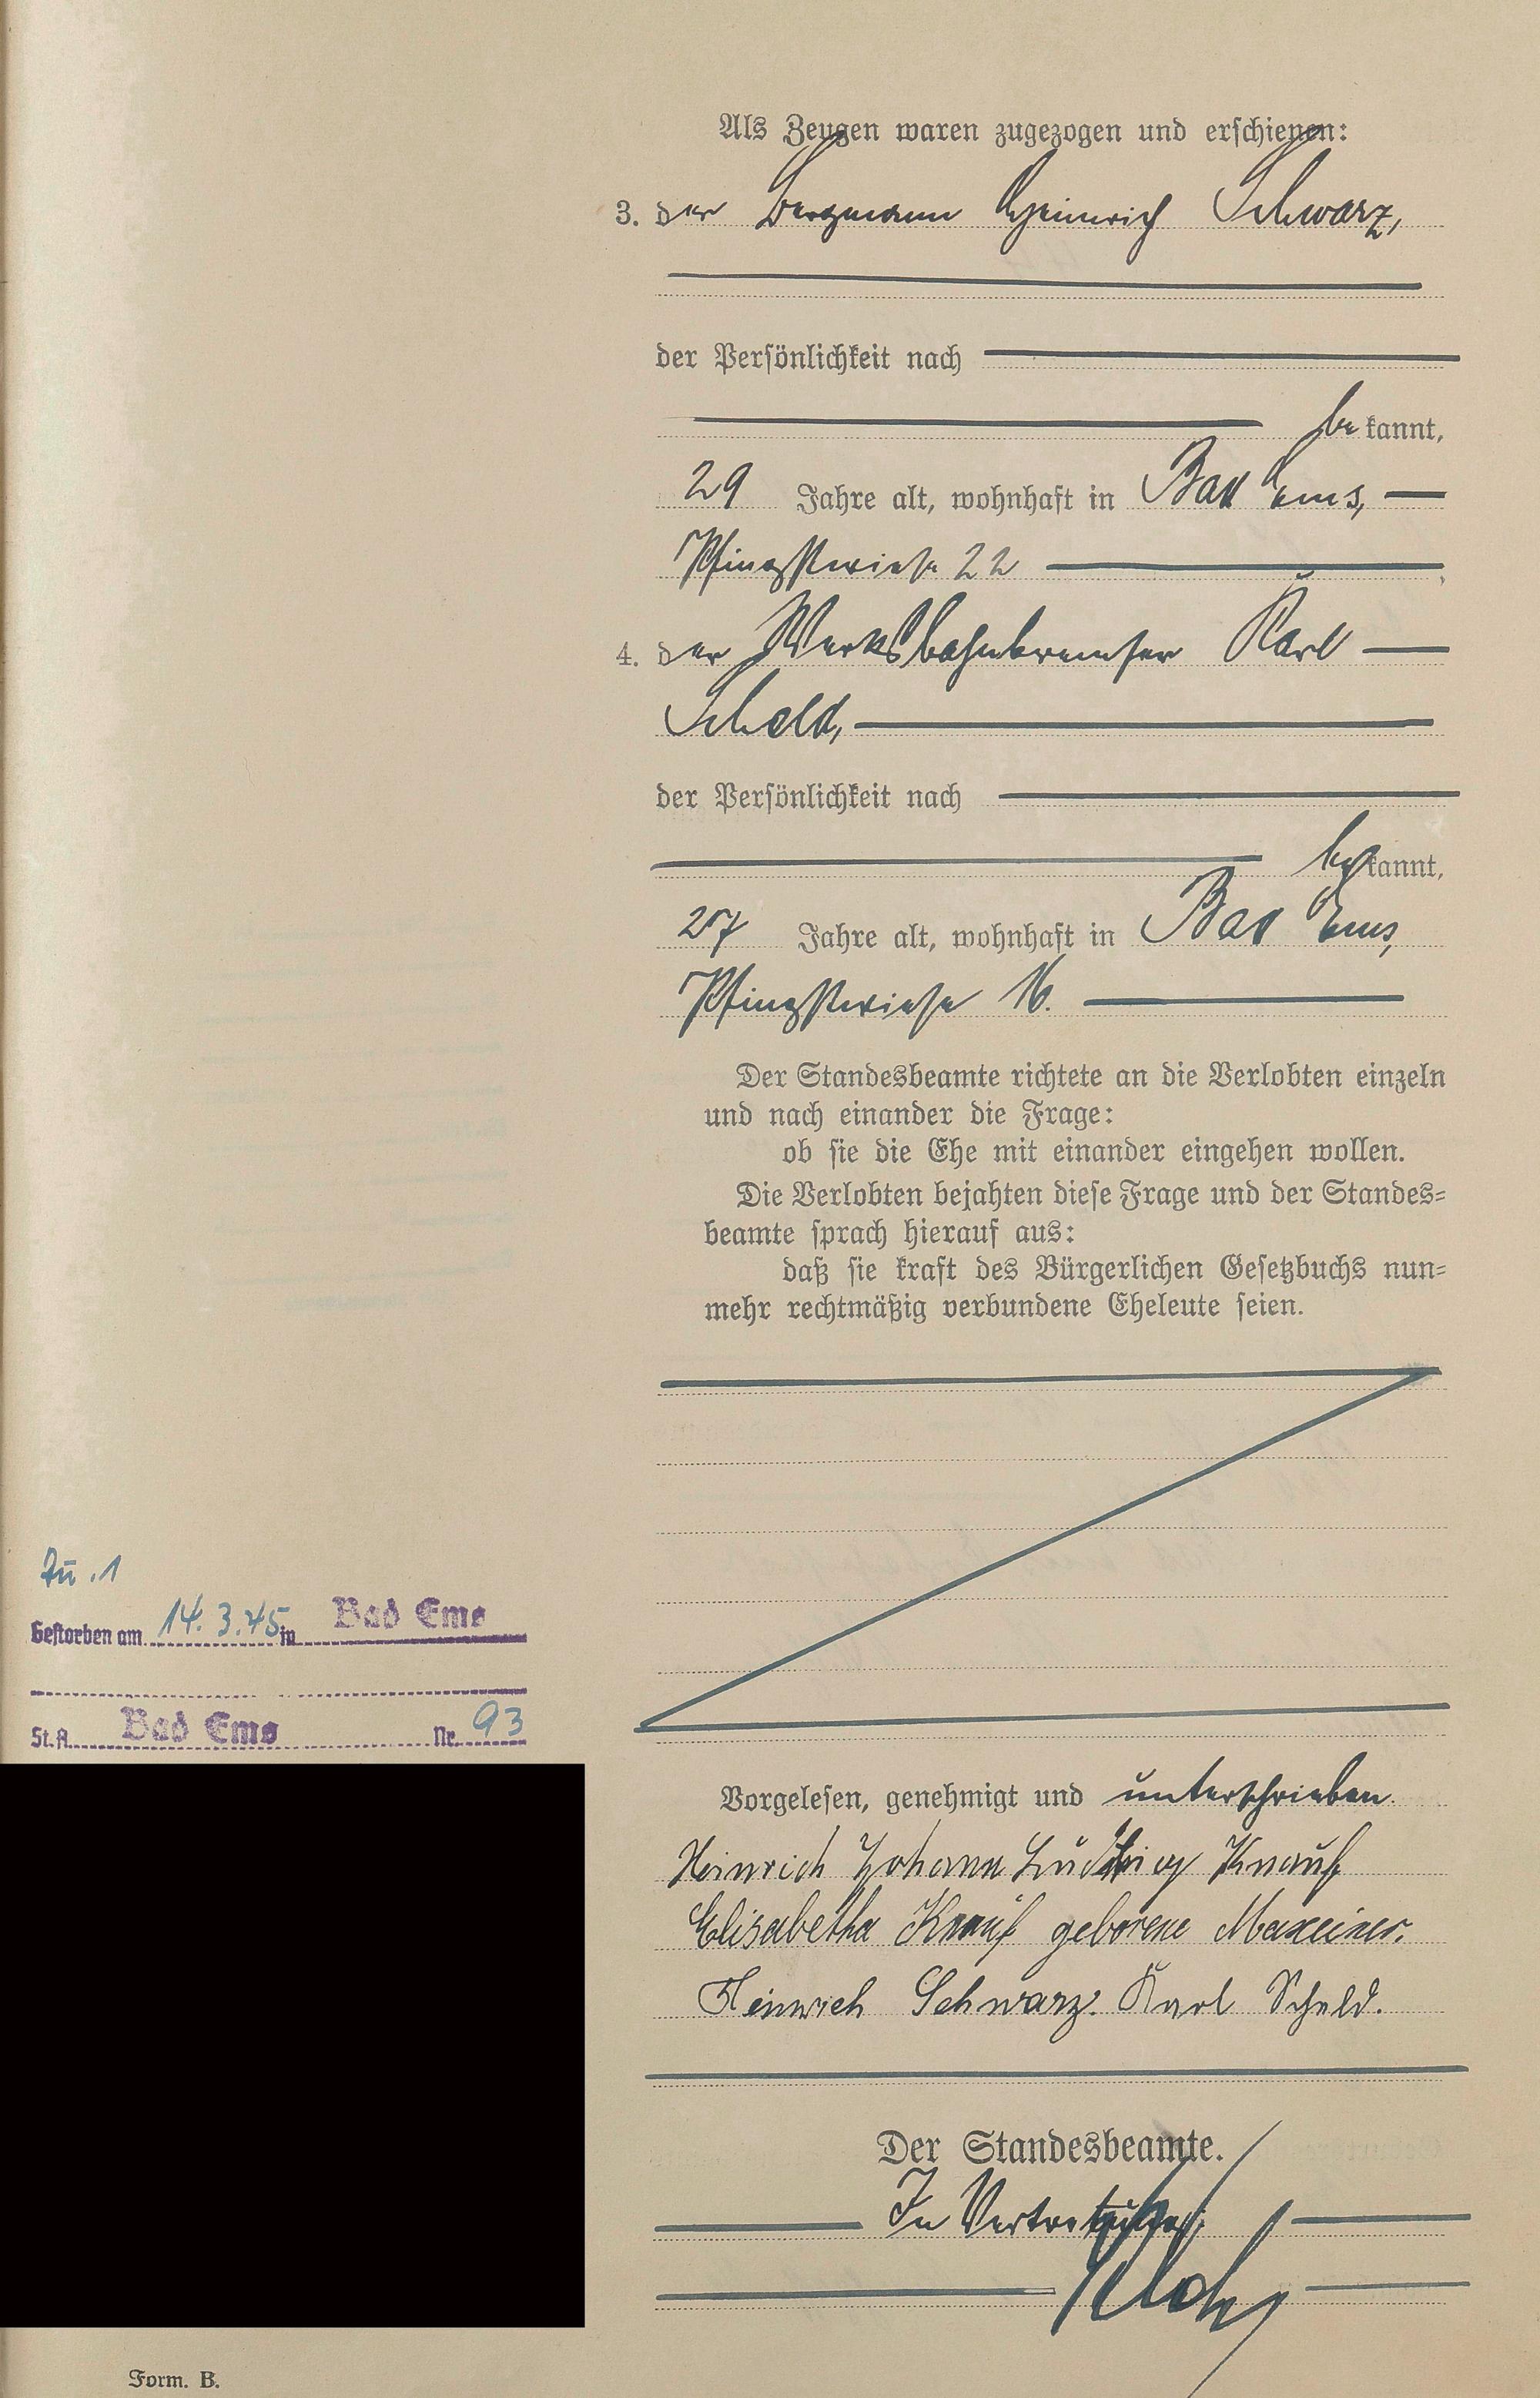 Als Zeugen waren zugezogen und erschienen:
3. der Bergmann Heinrich Schwarz,
der Persönlichkeit nach
be kannt,
29 Jahre alt, wohnhaft in Bad Ems,
Pfingstwiese 22
4. der Werksbahnbremser Karl
Scheld,
der Persönlichkeit nach
be kannt,
27 Jahre alt, wohnhaft in Bad Ems,
Pfingstwiese 16.
Der Standesbeamte richtete an die Verlobten einzeln
und nach einander die Frage:
ob sie die Ehe mit einander eingehen wollen.
Die Verlobten bejahten diese Frage und der Standes=
beamte sprach hierauf aus:
daß sie kraft des Bürgerlichen Gesetzbuchs nun=
mehr rechtmäßig verbundene Eheleute seien.
Zu .1
Gestorben am 14. 3. 45 in Bad Ems
St. A. Bad Ems Nr. 93
Vorgelesen, genehmigt und unterschrieben.
Heinrich Johann Ludwig Knauf
Elisabetha Knauf geborene Maxeiner.
Heinrich Schwarz. Karl Scheld.
Der Standesbeamte.
In Vertretung:
Form. B.